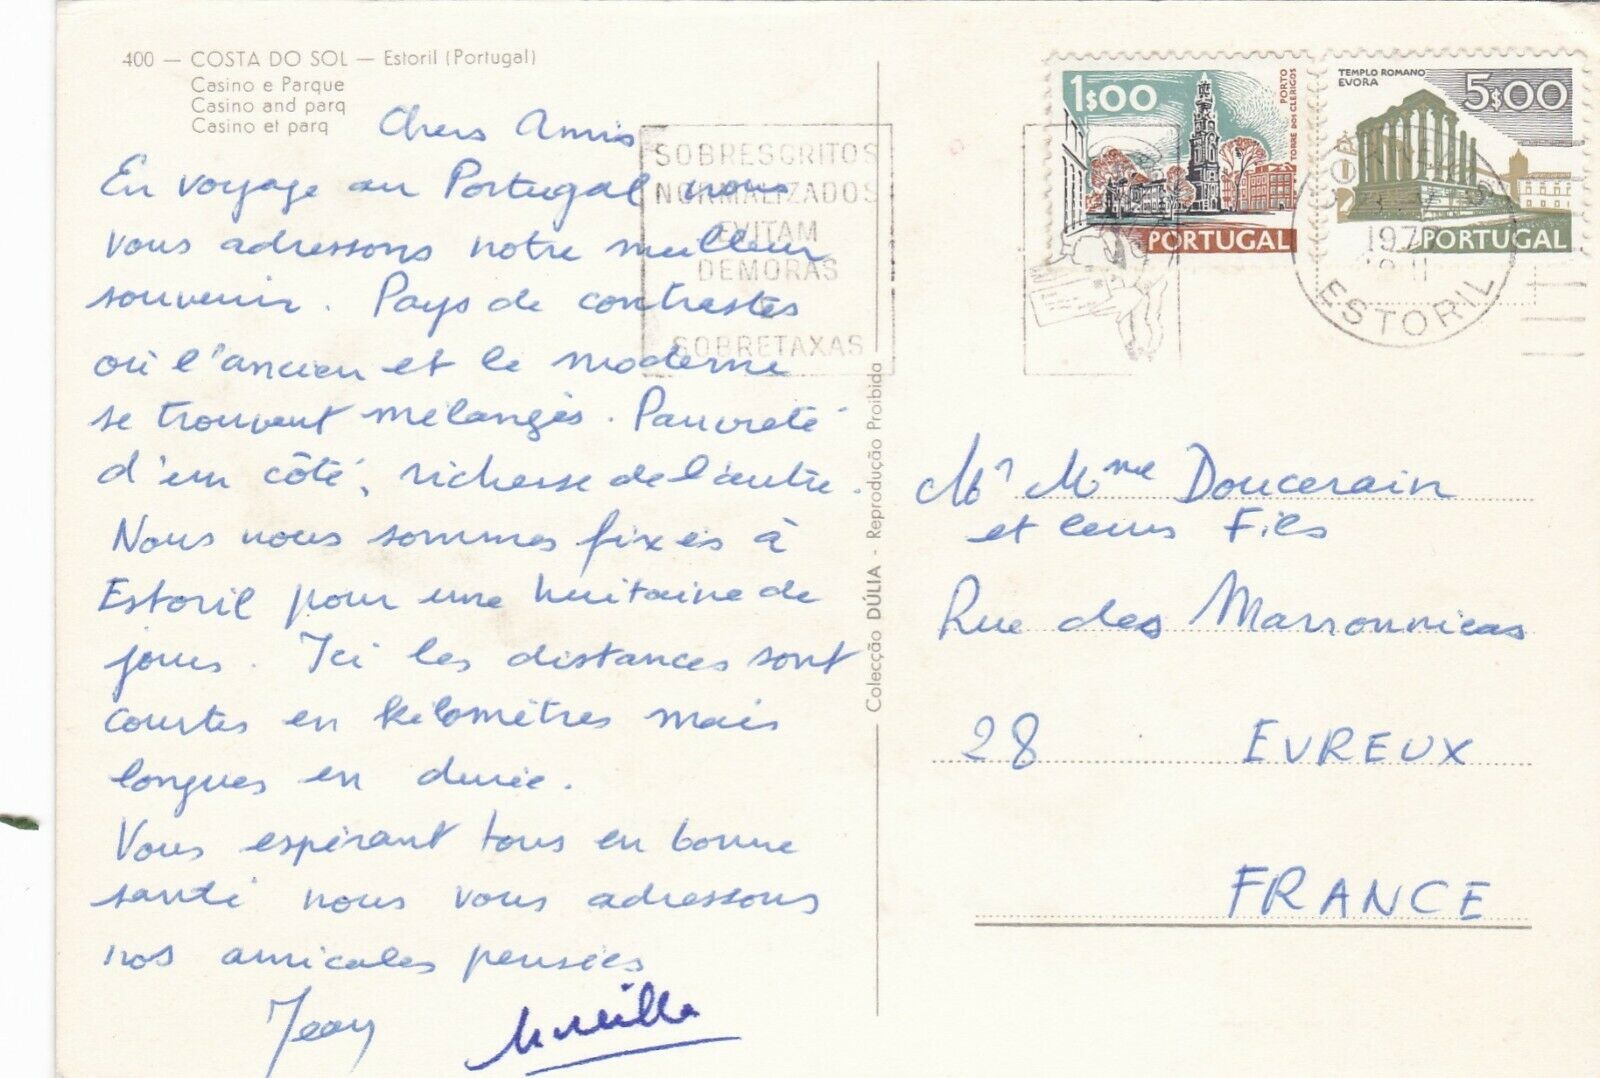 400 — COSTA DO SOL — Estoril (Portugal)
Casino e Parque
Casino and parq
Casino et parq
Chers Amis
En voyage au Portugal nous
vous adressons notre meilleur
souvenir. Pays de contrastes
où l'ancien et le moderne
se trouvent mélangés. Pauvreté
d'un côté, richesse de l'autre.
Nous nous sommes fixés à
Estoril pour une huitaine de
jours. Ici les distances sont
courtes en kilomètres mais
longues en durée.
Vous espérant tous en bonne
santé nous vous adressons
nos amicales pensées
Jean Mireille
SOBRESCRITOS
NORMALIZADOS
EVITAM
DEMORAS
E
SOBRETAXAS
Colecção DÚLIA - Reprodução Proibida
1$00
PORTO
TORRE DOS CLERIGOS
PORTUGAL
TEMPLO ROMANO
EVORA
5$00
PORTUGAL
ESTORIL
Mr Mme Doucerain
et leurs Fils
Rue des Marronniers
28 EVREUX
FRANCE